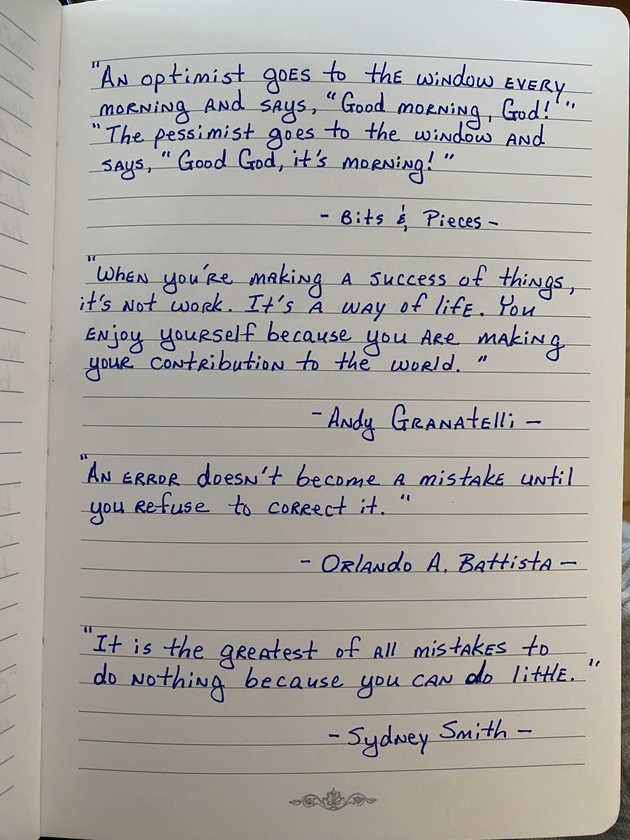 "An optimist goes to the window every
morning and says, "Good morning, God!" "
"The pessimist goes to the window and
says, "Good God, it's morning!"
- Bits & Pieces -
"When you're making a success of things,
it's not work. It's a way of life. You
enjoy yourself because you are making
your contribution to the world."
- Andy Granatelli -
"An error doesn't become a mistake until
you refuse to correct it."
- Orlando A. Battista -
"It is the greatest of all mistakes to
do nothing because you can do little."
- Sydney Smith -